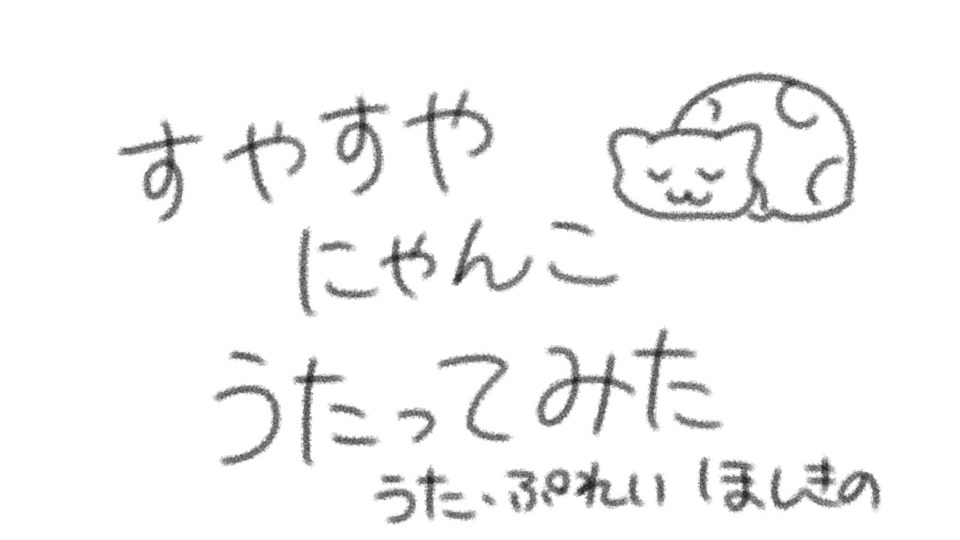 すやすや
にゃんこ
うたってみた
うた、ぷれい ほしきの